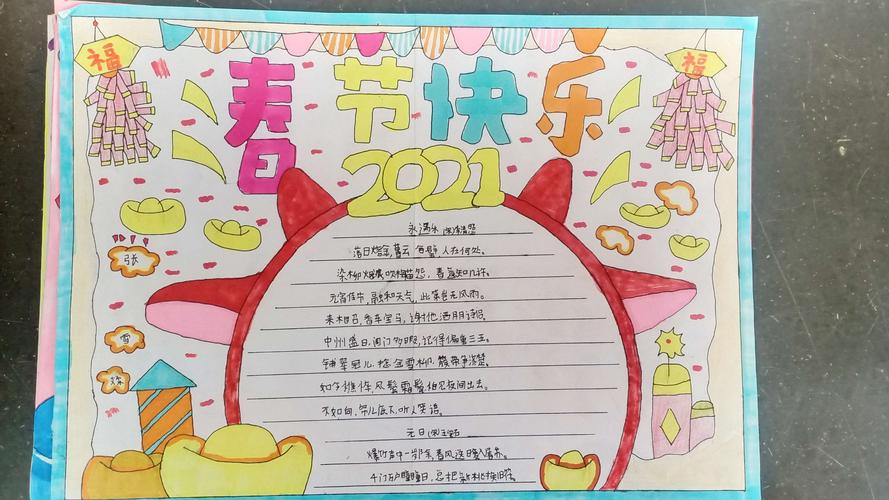 福
福
春节快乐
2021
永遇乐
落日熔金,暮云合璧,人在何处。
染柳烟浓,吹梅笛怨,春意知几许。
元宵佳节,融和天气,次第岂无风雨。
来相召,香车宝马,谢他酒朋诗侣。
中州盛日,闺门多暇,记得偏重三五。
铺翠冠儿,捻金雪柳,簇带争济楚。
如今憔悴,风鬟霜鬓,怕见夜间出去。
不如向,帘儿底下,听人笑语。
张
雪
元日
爆竹声中一岁除,春风送暖入屠苏。
千门万户曈曈日,总把新桃换旧符。